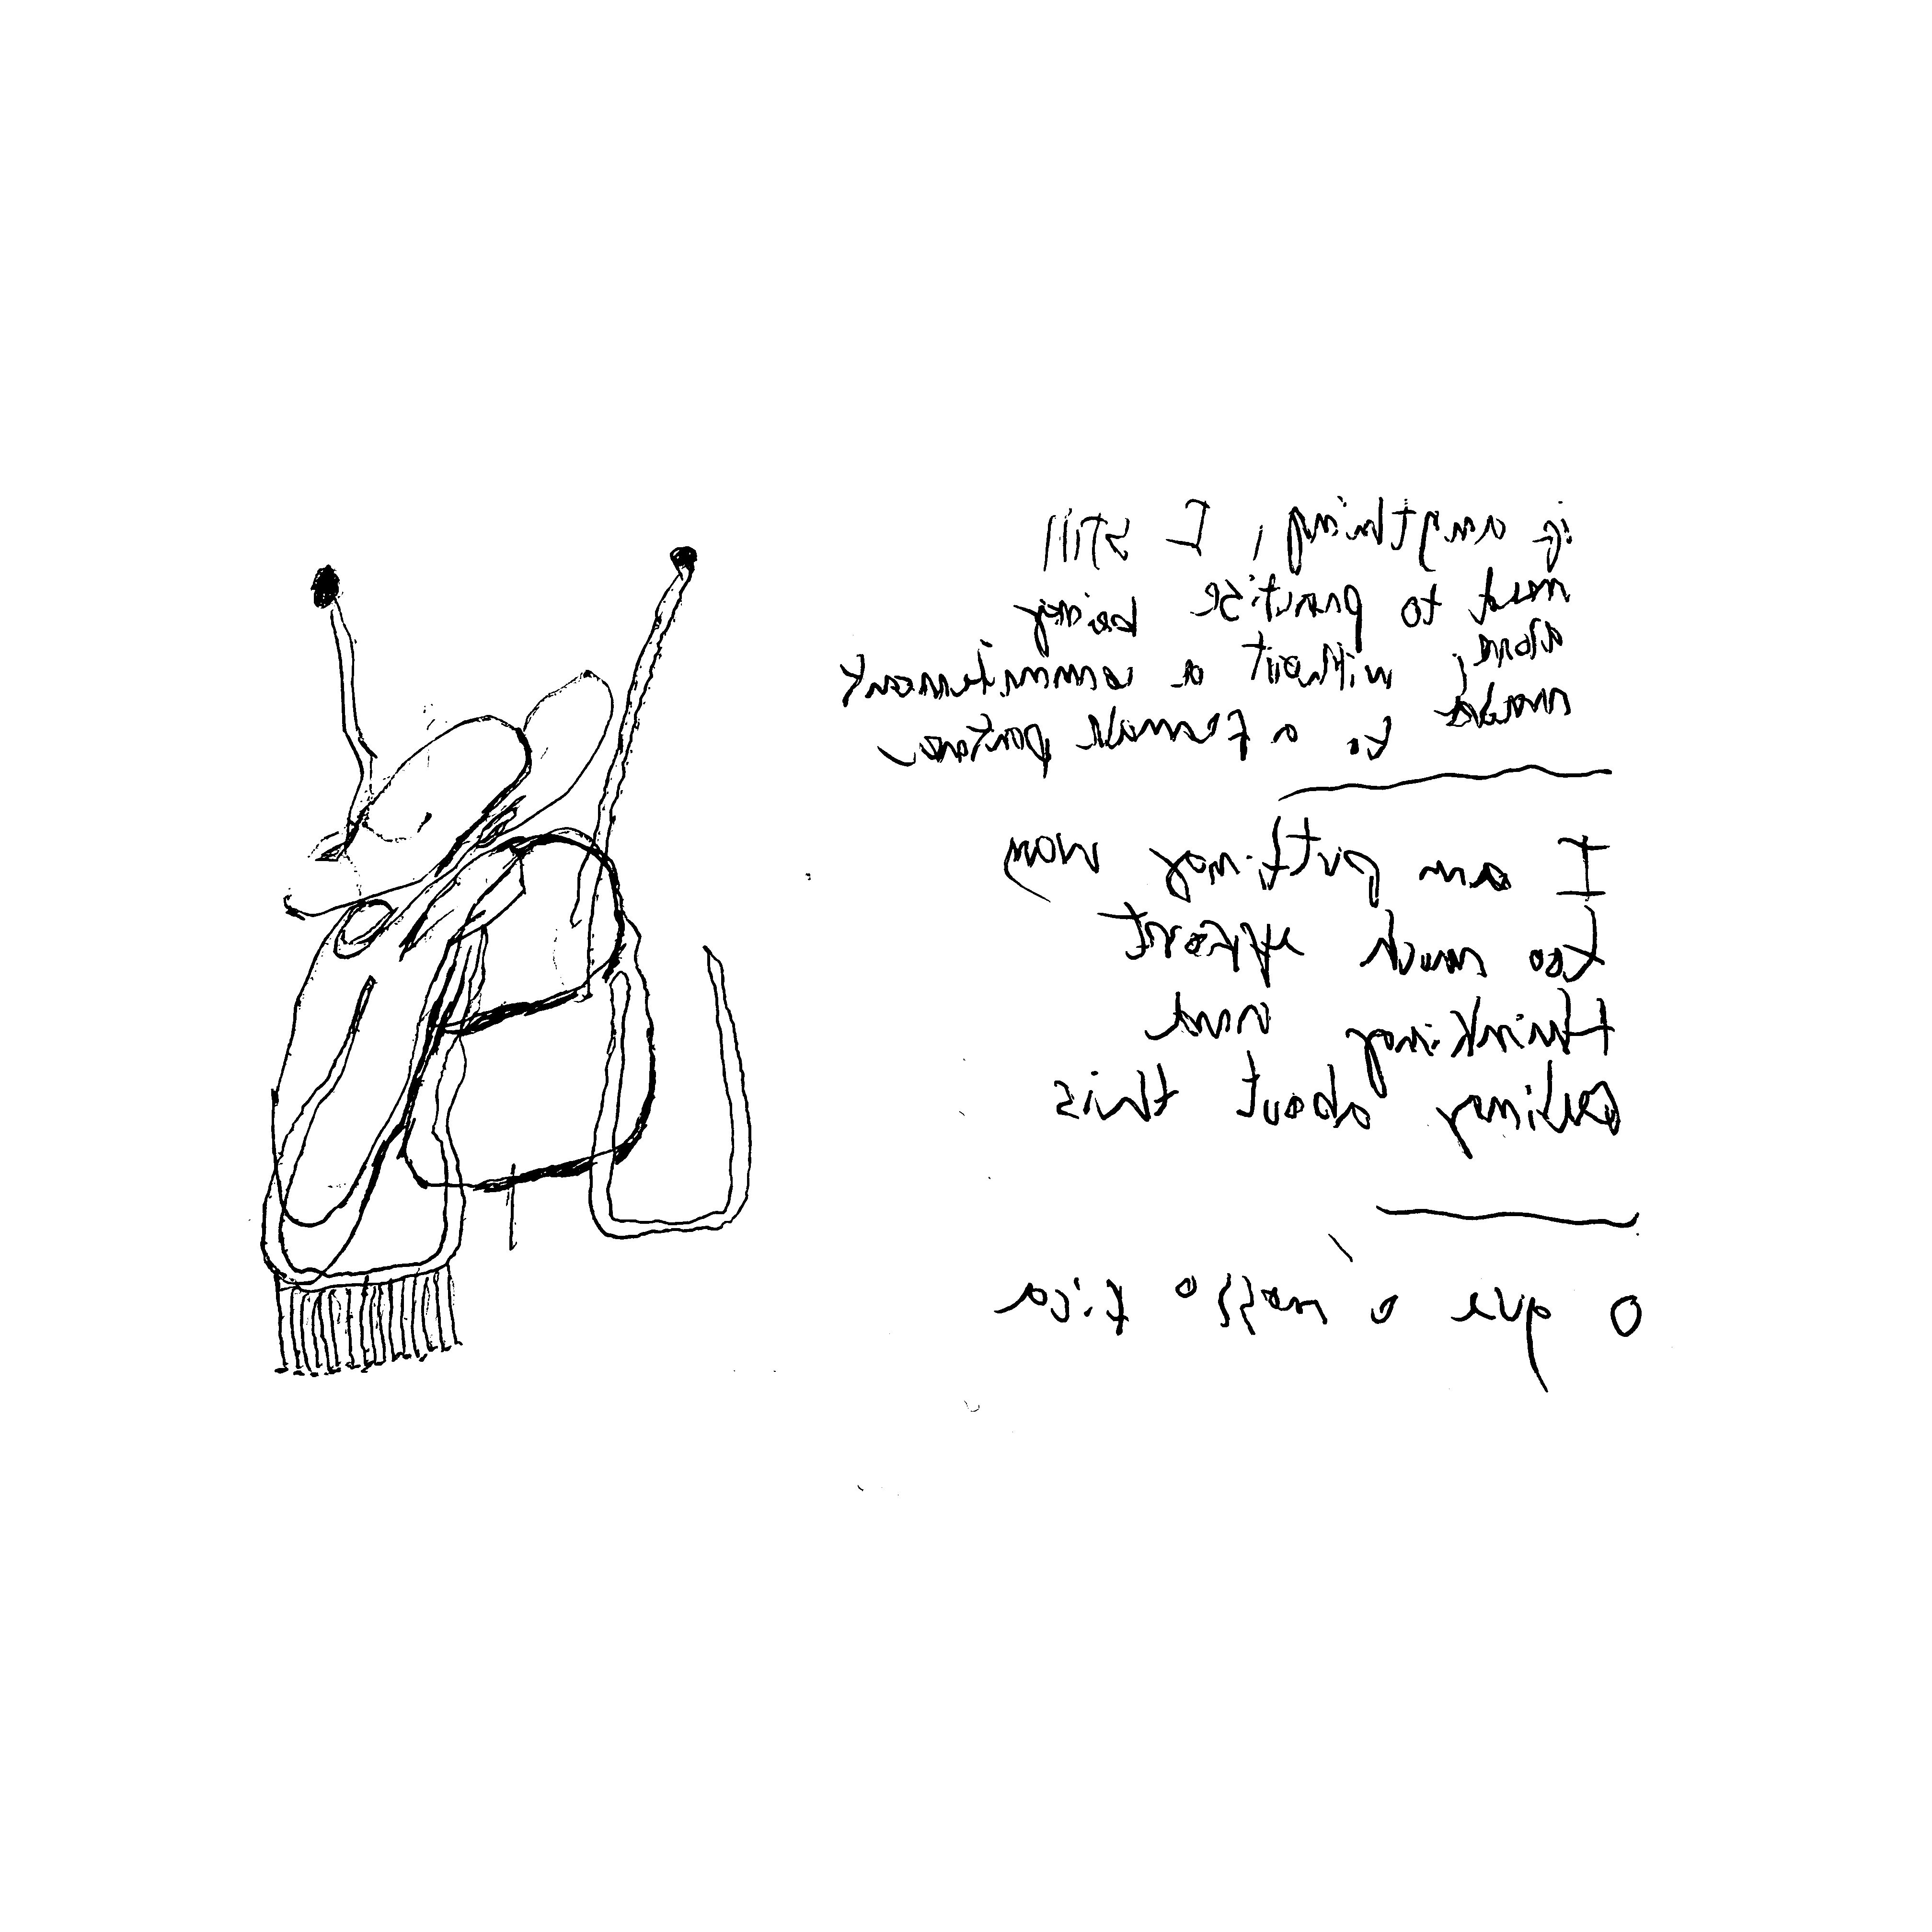 if anything, I still
need to practise being
alone, without a commitment
to a female partner
I am putting now
too much effort
thinking and
about this
O que o nosso fico